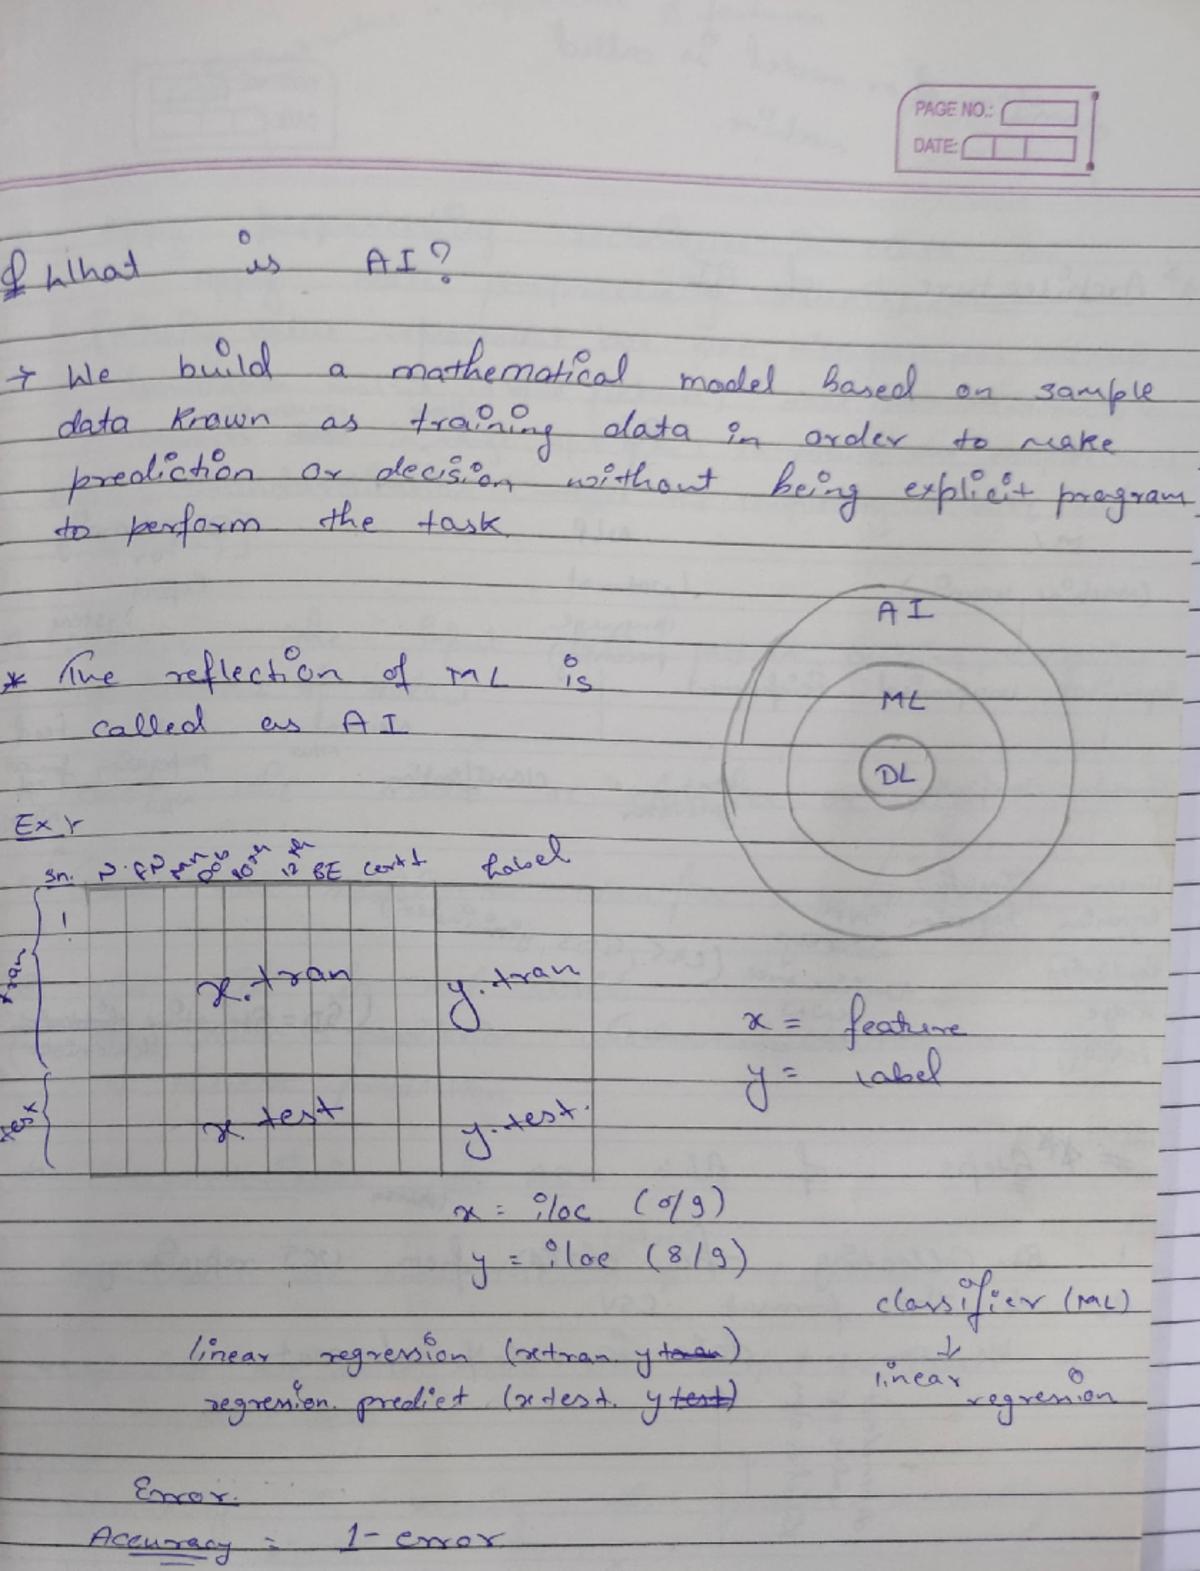 PAGE NO.:
DATE:
Q What is AI?
→ We build a mathematical model based on sample
data known as training data in order to make
prediction or decision without being explicit program
to perform the task.
AI
ML
DL
* The reflection of ML is
called as AI
Ex
Sn. 10th 12th BE Label
1
tran
x.tran y.tran
x = feature
y = label
test
x.test y.test.
x = iloc (0/9)
y = iloc (8/9)
classifier (ML)
↓
linear regression
linear regression (xtran. ytran)
regression. predict (xtest. ytest)
Error.
Accuracy = 1- error